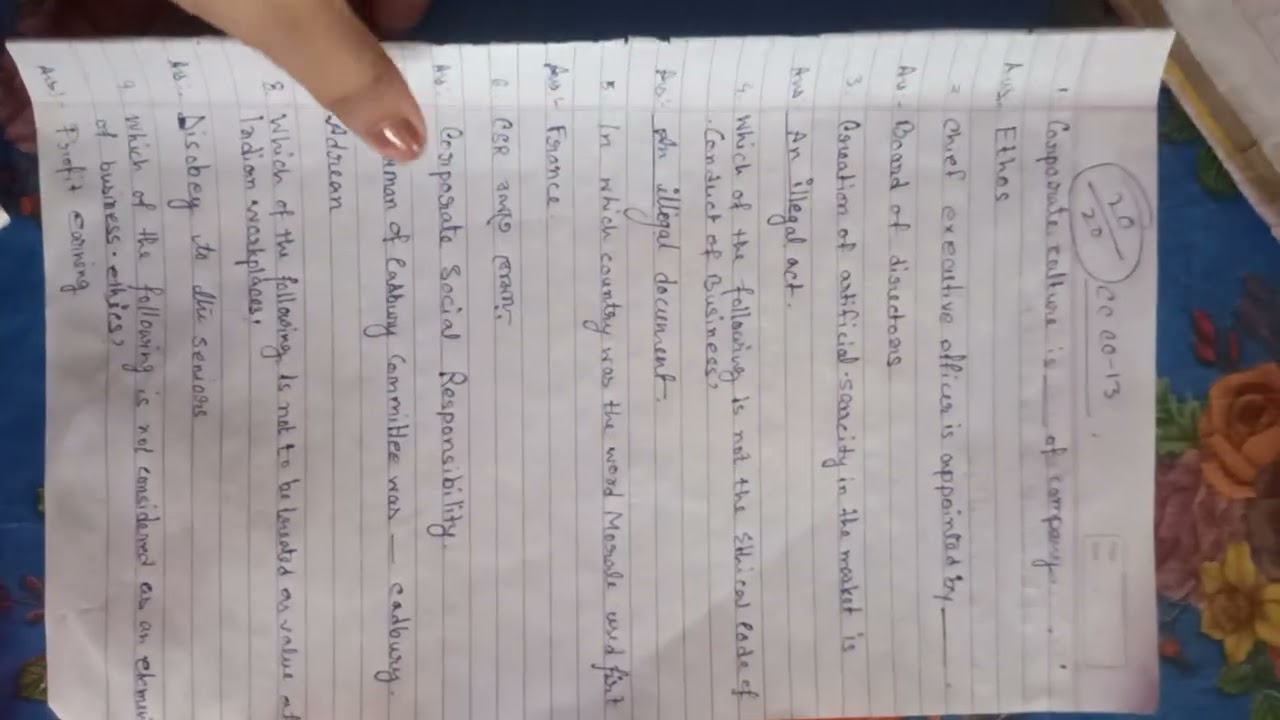 20/20 CC CO-13
1. Corporate culture is __ of company.
Ans. Ethos
2 Chief executive officer is appointed by ___.
Ans- Board of directors
3. Creation of artificial scarcity in the market is
Ans: An illegal act.
4. Which of the following is not the Ethical Code of
Conduct of Business?
Ans:- An illegal document.
5. In which country was the word Morale used first
Ans:- France.
6. CSR
Ans: Corporate Social Responsibility.
man of Cadbury Committee was — cadbury.
Adrean
8. Which of the following is not to be treated as value at
Indian workplaces.
Ans:- Disobey to the seniors
9. Which of the following is not considered as an elemen
of business ethics?
Ans:- Profit earning